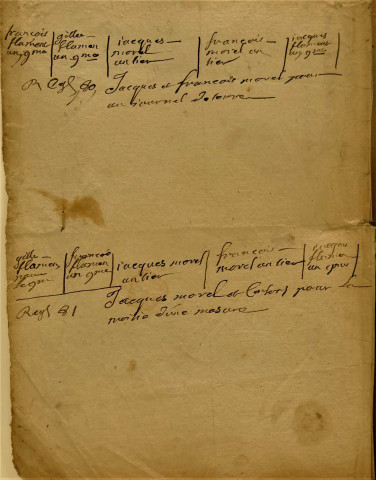 françois flament un 9me
gilles flamen un 9me
jacques morel un tier
françois morel un tier
jacques flamen un 9me
R Regl 80, Jacques et françois morel pour
un journel de terre
gilles flamen
françois flamen un 9me
jacques morel un tier
françois morel un tier
jacques flamen un
Regl 81 Jacques morel et Consors pour la
moitié d'une masure